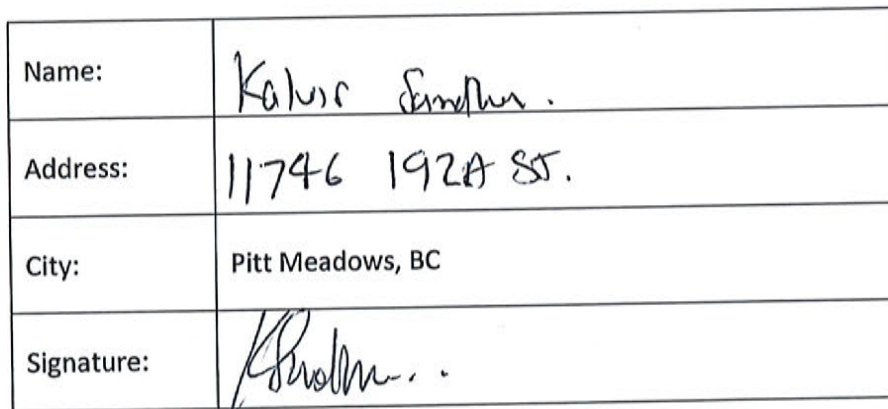 Name: Kalvir Sandhu.
Address: 11746 192A ST.
City: Pitt Meadows, BC
Signature: